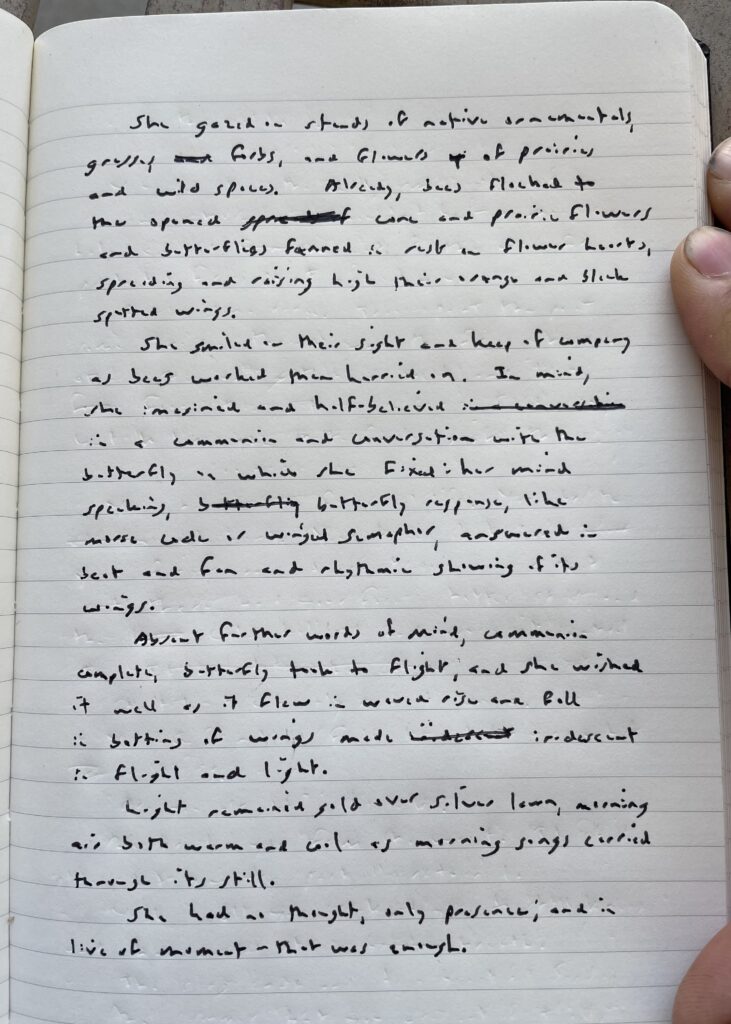 She gazed on stands of native ornamentals,
grasses, forbs, and flowers of prairies
and wild spaces. Already, bees flocked to
the opened cone and prairie flowers
and butterflies fanned in rest on flower hearts,
spreading and raising high their orange and black
spotted wings.
She smiled on their sight and keep of company
as bees worked then harried on. In mind,
she imagined and half-believed
in a communion and conversation with the
butterfly on which she fixed: her mind
speaking, butterfly response, like
morse code or winged semaphor, answered in
beat and fan and rhythmic showing of its
wings.
Absent further words of mind, communion
complete, butterfly took to flight, and she wished
it well as it flew in waved rise and fall
in batting of wings made iridescent
in flight and light.
Light remained gold over silver lawn, morning
air both warm and cool as morning songs carried
through its still.
She had no thought, only presence; and in
live of moment – that was enough.